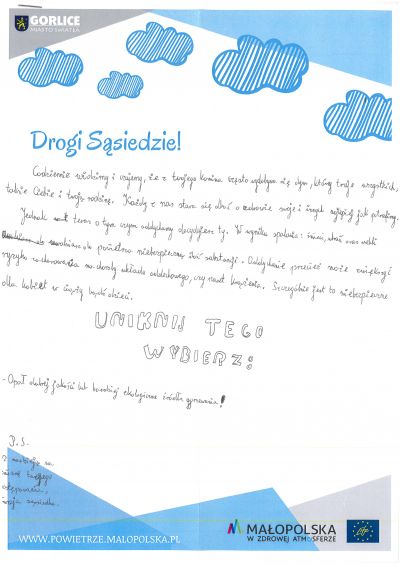 GORLICE
MIASTO ŚWIATŁA
Drogi Sąsiedzie!
Codziennie widzimy i czujemy, że z twojego komina często wydobywa się dym, który truje wszystkich,
także Ciebie i twoją rodzinę. Każdy z nas stara się dbać o zdrowie swoje i innych najlepiej jak potrafimy.
Jednak teraz o tym czym oddychamy decydujesz ty. W wyniku spalania: śmieci, ubrań oraz mebli
do powietrza niebezpieczną ilość substancji. Oddychanie nimi może zwiększyć
ryzyko zachorowania na choroby układu oddechowego, czy nawet krążenia. Szczególnie jest to niebezpieczne
dla kobiet w ciąży bądź dzieci.
UNIKNIJ TEGO
WYBIERZ:
- Opał dobrej jakości lub bardziej ekologiczne źródła ogrzewania!
P.S.
z nadzieją na
twojego
twoja sąsiadka.
WWW.POWIETRZE.MALOPOLSKA.PL
MAŁOPOLSKA
W ZDROWEJ ATMOSFERZE